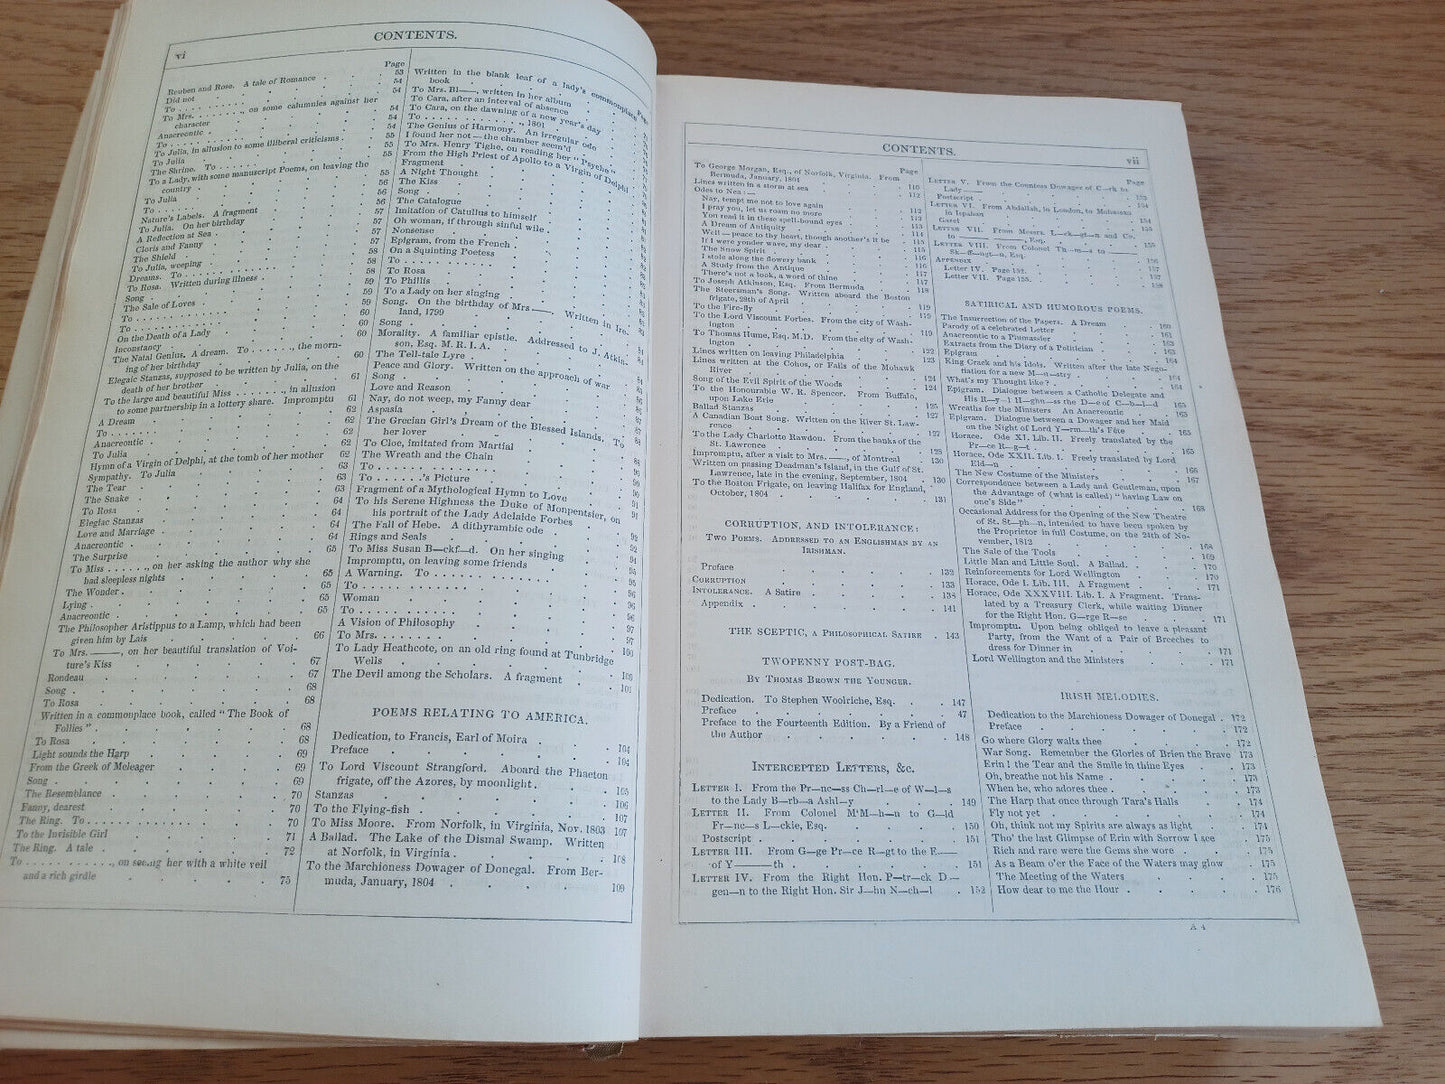 vi
CONTENTS.
Page
Reuben and Rose. A tale of Romance . . . 53
Did not . . . 54
To . . . . . . . . .
To Mrs. . . . . . . . ., on some calumnies against her
character . . . 54
Anacreontic . . . 54
To . . .
To Julia, in allusion to some illiberal criticisms . 55
To Julia . . . 55
The Shrine. To . . . . . . 55
To a Lady, with some manuscript Poems, on leaving the
country . . . 55
To Julia . . . 56
To . . . . . . . 56
Nature's Labels. A fragment . . . 56
To Julia. On her birthday . . . 57
A Reflection at Sea . . . 57
Cloris and Fanny . . . 57
The Shield . . . 57
To Julia, weeping . . . 58
Dreams. To . . . . . . 58
To Rosa. Written during illness . . . 58
Song . . . 59
The Sale of Loves . . . 59
To . . . . . . . 59
To . . . . . . . 60
On the Death of a Lady . . . 60
Inconstancy . . . 60
The Natal Genius. A dream. To . . . . . . ., the morn-
ing of her birthday . . . 60
Elegiac Stanzas, supposed to be written by Julia, on the
death of her brother . . . 61
To the large and beautiful Miss . . . . . . ., in allusion
to some partnership in a lottery share. Impromptu 61
A Dream . . . 62
To . . . . . . . 62
Anacreontic . . . 62
To Julia . . . 62
Hymn of a Virgin of Delphi, at the tomb of her mother 62
Sympathy. To Julia . . . 63
The Tear . . . 63
The Snake . . . 63
To Rosa . . . 64
Elegiac Stanzas . . . 64
Love and Marriage . . . 64
Anacreontic . . . 64
The Surprise . . . 65
To Miss . . . . . . ., on her asking the author why she
had sleepless nights . . . 65
The Wonder . . . 65
Lying . . . 65
Anacreontic . . .
The Philosopher Aristippus to a Lamp, which had been
given him by Lais . . . 66
To Mrs. ——, on her beautiful translation of Voi-
ture's Kiss . . . 67
Rondeau . . . 67
Song . . . 68
To Rosa . . . 68
Written in a commonplace book, called "The Book of
Follies" . . . 68
To Rosa . . . 68
Light sounds the Harp . . . 69
From the Greek of Meleager . . . 69
Song . . . 69
The Resemblance . . . 70
Fanny, dearest . . . 70
The Ring. To . . . . . . 70
To the Invisible Girl . . . 71
The Ring. A tale . . . 72
To . . . . . . . . . . . ., on seeing her with a white veil
and a rich girdle . . . 75
Page
Written in the blank leaf of a lady's commonplace
book
To Mrs. Bl——, written in her album
To Cara, after an interval of absence
To Cara, on the dawning of a new year's day
To . . . . . . . . . ., 1801
The Genius of Harmony. An irregular ode
I found her not — the chamber seem'd
To Mrs. Henry Tighe, on reading her "Psyche"
From the High Priest of Apollo to a Virgin of Delphi
Fragment
A Night Thought
The Kiss
Song
The Catalogue
Imitation of Catullus to himself
Oh woman, if through sinful wile
Nonsense
Epigram, from the French
On a Squinting Poetess
To . . . . . . .
To Rosa
To Phillis
To a Lady on her singing
Song. On the birthday of Mrs ——. Written in Ire-
land, 1799
Song
Morality. A familiar epistle. Addressed to J. Atkin-
son, Esq. M. R. I. A.
The Tell-tale Lyre
Peace and Glory. Written on the approach of war
Song
Love and Reason
Nay, do not weep, my Fanny dear
Aspasia
The Grecian Girl's Dream of the Blessed Islands. To
her lover
To Cloe, imitated from Martial
The Wreath and the Chain
To . . . . . . .
To . . . . . . .'s Picture
Fragment of a Mythological Hymn to Love
To his Serene Highness the Duke of Monpentsier, on
his portrait of the Lady Adelaide Forbes
The Fall of Hebe. A dithyrambic ode
Rings and Seals
To Miss Susan B—ckf—d. On her singing
Impromptu, on leaving some friends
A Warning. To . . . . . . .
To . . . . . . .
Woman
To . . . . . . .
A Vision of Philosophy
To Mrs. . . . . . . . 100
To Lady Heathcote, on an old ring found at Tunbridge
Wells . . . 100
The Devil among the Scholars. A fragment . . . 101
POEMS RELATING TO AMERICA.
Dedication, to Francis, Earl of Moira . . . 104
Preface . . . 104
To Lord Viscount Strangford. Aboard the Phaeton
frigate, off the Azores, by moonlight . . . 105
Stanzas . . . 106
To the Flying-fish . . . 107
To Miss Moore. From Norfolk, in Virginia, Nov. 1803 107
A Ballad. The Lake of the Dismal Swamp. Written
at Norfolk, in Virginia . . . 108
To the Marchioness Dowager of Donegal. From Ber-
muda, January, 1804 . . . 109
CONTENTS.
vii
Page
To George Morgan, Esq., of Norfolk, Virginia. From
Bermuda, January, 1804 . . . 110
Lines written in a storm at sea . . . 112
Odes to Nea:—
Nay, tempt me not to love again . . . 112
I pray you, let us roam no more . . . 112
You read it in these spell-bound eyes . . . 113
A Dream of Antiquity . . . 113
Well — peace to thy heart, though another's it be . 114
If I were yonder wave, my dear . . . 115
The Snow Spirit . . . 116
I stole along the flowery bank . . . 116
A Study from the Antique . . . 116
There's not a look, a word of thine . . . 117
To Joseph Atkinson, Esq. From Bermuda . . . 117
The Steersman's Song. Written aboard the Boston
frigate, 28th of April . . . 118
To the Fire-fly . . . 119
To the Lord Viscount Forbes. From the city of Wash-
ington . . . 119
To Thomas Hume, Esq., M.D. From the city of Wash-
ington
Lines written on leaving Philadelphia . . . 122
Lines written at the Cohos, or Falls of the Mohawk
River . . . 123
Song of the Evil Spirit of the Woods . . . 124
To the Honourable W. R. Spencer. From Buffalo,
upon Lake Erie . . . 124
Ballad Stanzas . . . 125
A Canadian Boat Song. Written on the River St. Law-
rence . . . 127
To the Lady Charlotte Rawdon. From the banks of the
St. Lawrence . . . 127
Impromptu, after a visit to Mrs. ——, of Montreal . 128
Written on passing Deadman's Island, in the Gulf of St.
Lawrence, late in the evening, September, 1804 . 130
To the Boston Frigate, on leaving Halifax for England,
October, 1804 . . . 131
CORRUPTION, AND INTOLERANCE:
Two Poems. Addressed to an Englishman by an
Irishman.
Preface . . . 132
Corruption . . . 133
Intolerance. A Satire . . . 138
Appendix . . . 141
THE SCEPTIC, a Philosophical Satire . 143
TWOPENNY POST-BAG.
By Thomas Brown the Younger.
Dedication. To Stephen Woolriche, Esq. . . 147
Preface . . . 47
Preface to the Fourteenth Edition. By a Friend of
the Author . . . 148
Intercepted Letters, &c.
Letter I. From the Pr—nc—ss Ch—rl—e of W—l—s
to the Lady B—rb—a Ashl—y . . . 149
Letter II. From Colonel M'M—h—n to G—ld
Fr—nc—s L—ckie, Esq. . . . 150
Postscript . . . 151
Letter III. From G—ge Pr—ce R—gt to the E——
of Y——th . . . 151
Letter IV. From the Right Hon. P—tr—ck D—
gen—n to the Right Hon. Sir J—hn N—ch—l . 152
Page
Letter V. From the Countess Dowager of C—rk to
Lady —— . . . 153
Postscript . . .
Letter VI. From Abdallah, in London, to Mohassan
in Ispahan . . . 154
Gazel . . . 155
Letter VII. From Messrs. L—ck—gt—n and Co.
to —— ——, Esq. . . . 155
Letter VIII. From Colonel Th—m—s to ——
Sk—ff—ngt—n, Esq. . . . 156
Appendix . . . 157
Letter IV. Page 152. . . . 157
Letter VII. Page 155. . . . 158
SATIRICAL AND HUMOROUS POEMS.
The Insurrection of the Papers. A Dream . . . 160
Parody of a celebrated Letter . . . 161
Anacreontic to a Plumassier . . . 163
Extracts from the Diary of a Politician . . . 163
Epigram . . . 164
King Crack and his Idols. Written after the late Nego-
tiation for a new M—n—stry . . . 164
What's my Thought like? . . . 164
Epigram. Dialogue between a Catholic Delegate and
His R—y—l H—ghn—ss the D—e of C—b—l—d 165
Wreaths for the Ministers An Anacreontic . . . 165
Epigram. Dialogue between a Dowager and her Maid
on the Night of Lord Y—rm—th's Fête . . . 165
Horace. Ode XI. Lib. II. Freely translated by the
Pr—ce R—g—t . . . 165
Horace, Ode XXII. Lib. I. Freely translated by Lord
Eld—n . . . 166
The New Costume of the Ministers . . . 167
Correspondence between a Lady and Gentleman, upon
the Advantage of (what is called) "having Law on
one's Side" . . . 168
Occasional Address for the Opening of the New Theatre
of St. St—ph—n, intended to have been spoken by
the Proprietor in full Costume, on the 24th of No-
vember, 1812 . . . 168
The Sale of the Tools . . . 169
Little Man and Little Soul. A Ballad. . . . 170
Reinforcements for Lord Wellington . . . 170
Horace, Ode I. Lib. III. A Fragment . . . 171
Horace, Ode XXXVIII. Lib. I. A Fragment. Trans-
lated by a Treasury Clerk, while waiting Dinner
for the Right Hon. G—rge R—se . . . 171
Impromptu. Upon being obliged to leave a pleasant
Party, from the Want of a Pair of Breeches to
dress for Dinner in . . . 171
Lord Wellington and the Ministers . . . 171
IRISH MELODIES.
Dedication to the Marchioness Dowager of Donegal . 172
Preface . . . 172
Go where Glory waits thee . . . 172
War Song. Remember the Glories of Brien the Brave 173
Erin! the Tear and the Smile in thine Eyes . . . 173
Oh, breathe not his Name . . . 173
When he, who adores thee . . . 173
The Harp that once through Tara's Halls . . . 174
Fly not yet . . . 174
Oh, think not my Spirits are always as light . . . 174
Tho' the last Glimpse of Erin with Sorrow I see . 175
Rich and rare were the Gems she wore . . . 175
As a Beam o'er the Face of the Waters may glow . 175
The Meeting of the Waters . . . 175
How dear to me the Hour . . . 176
A 4